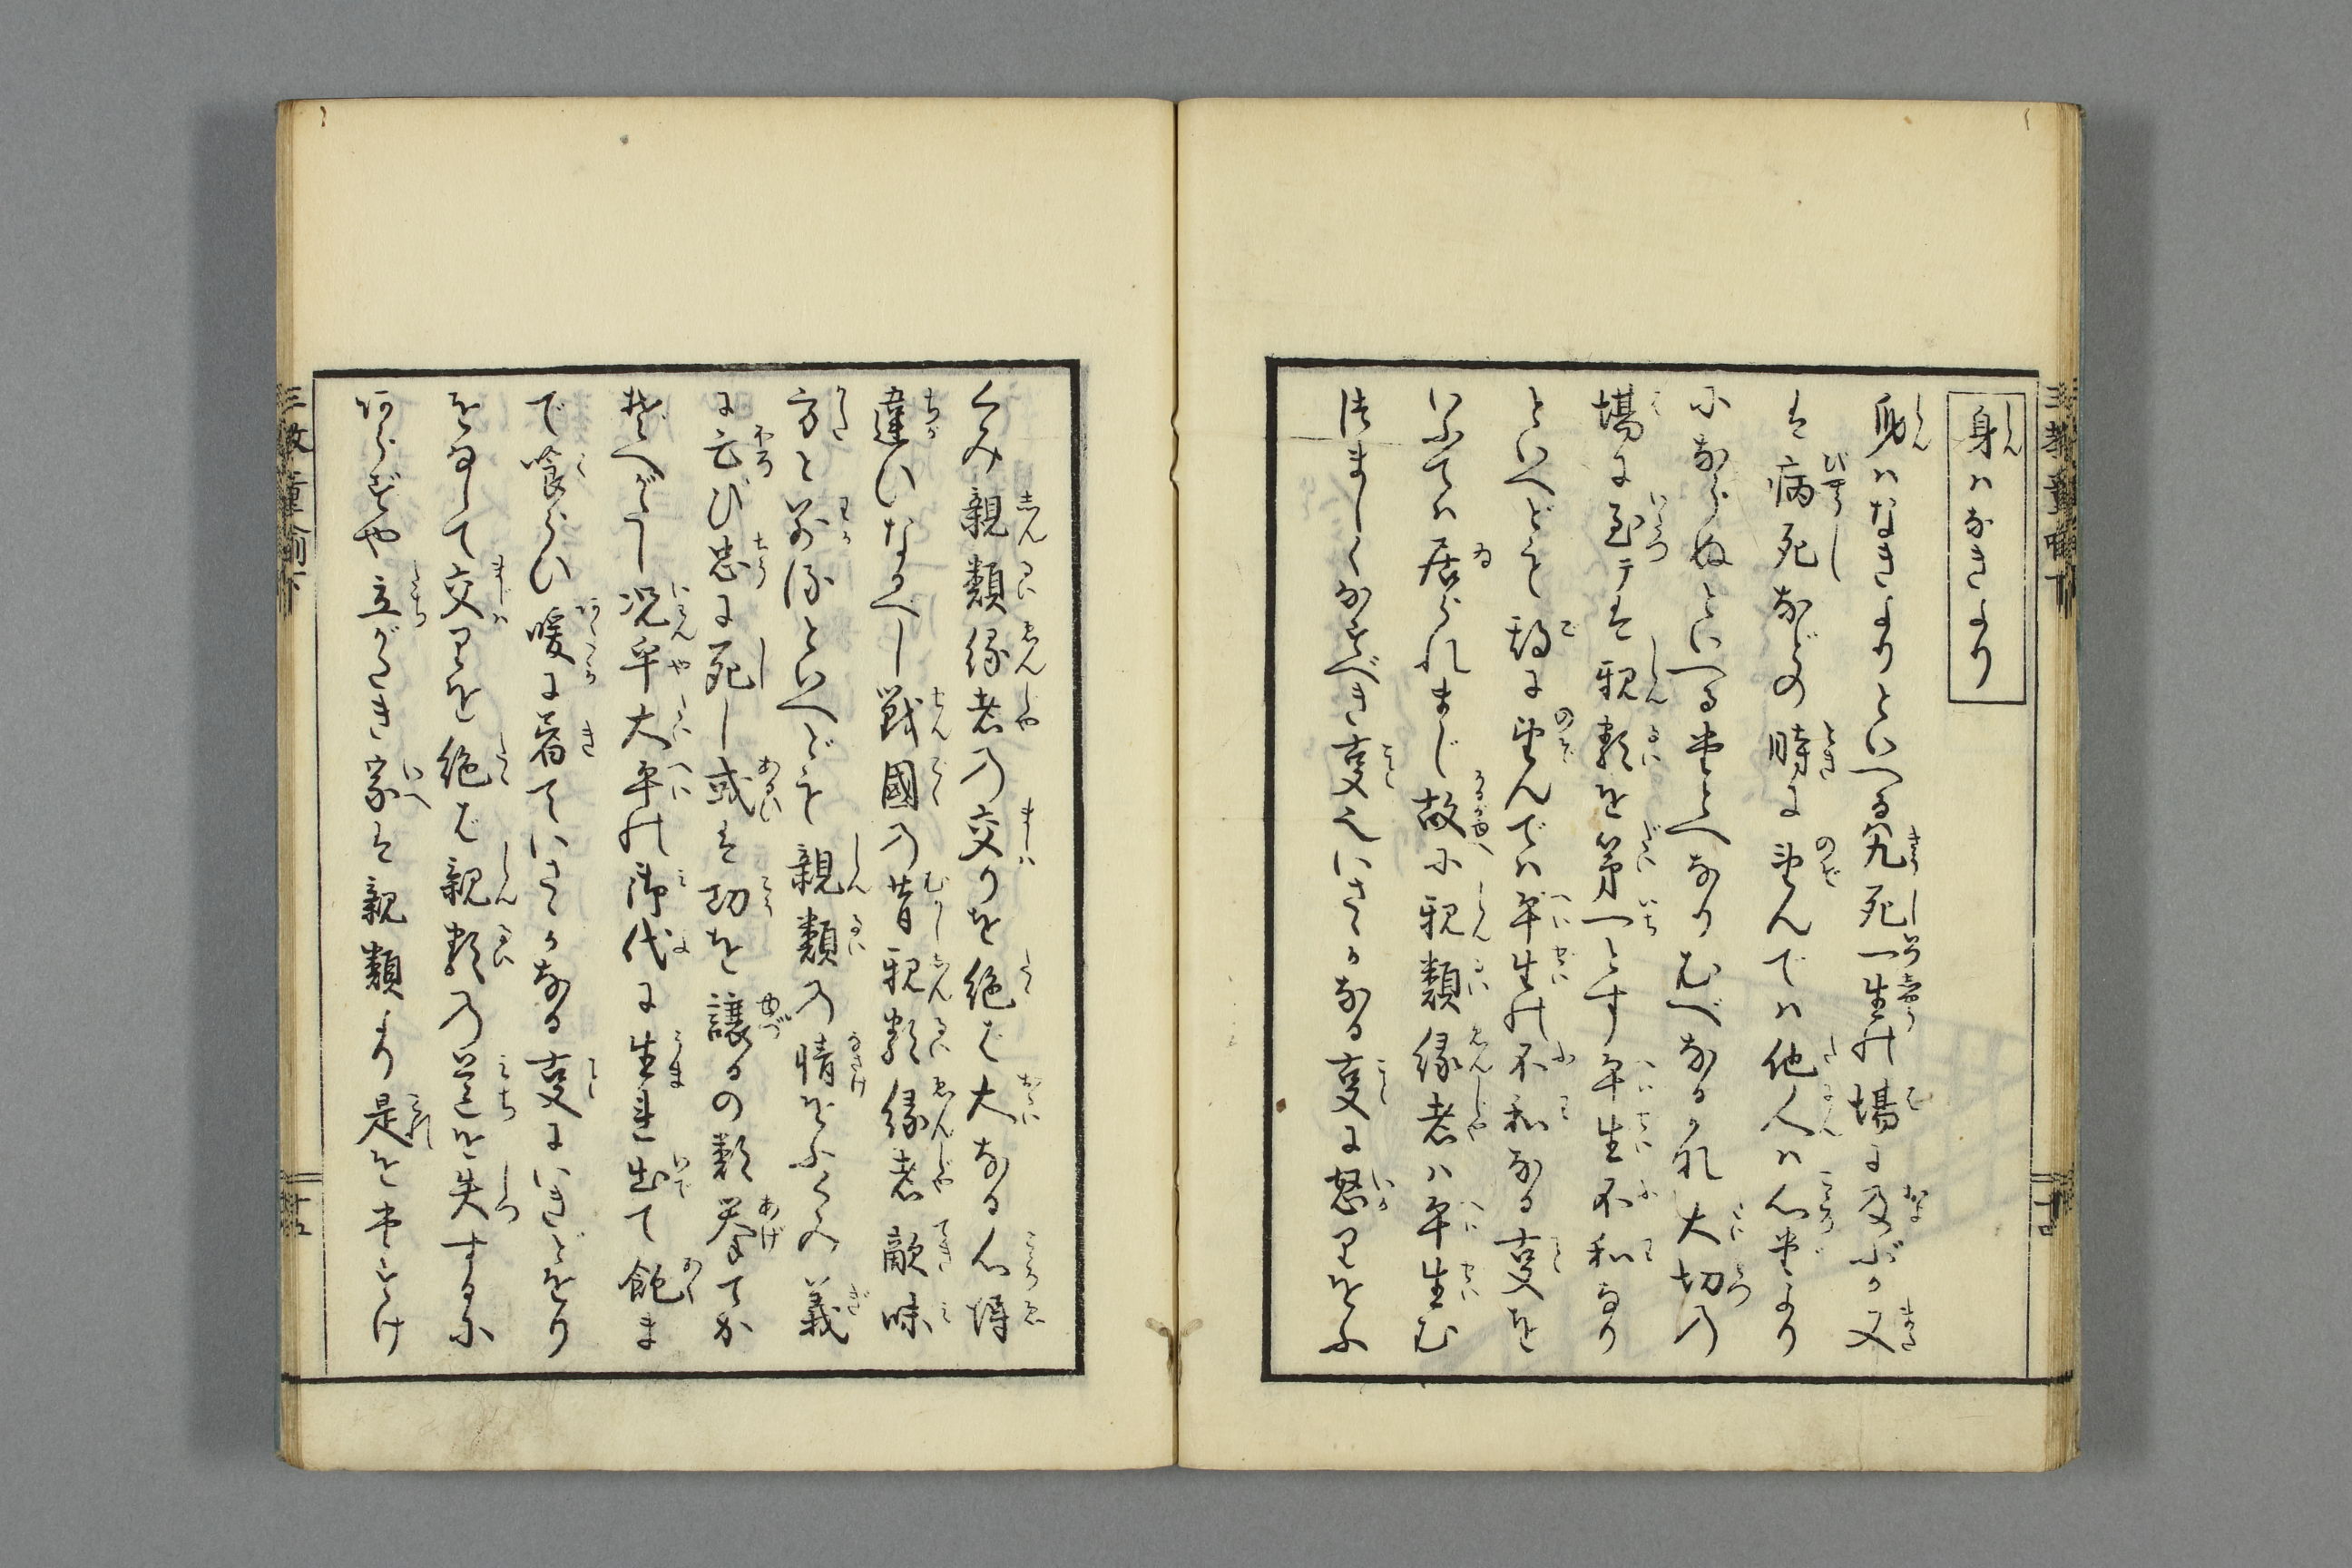 三教童喩下
十四
身ハなきより
身ハなきよりといへる究死一生の場に及ぶか又
は病死などの時に望んでハ他人ハ心も
小ならぬといへるたとへなりむべなるかな大切の
場に至テは親類を第一とす平生不和なり
といへども期に望んでハ平生の不和なる事を
いふてハ居られまじ故に親類縁者ハ平生む
つましくなすべき事也いさゝかなる事に怒りをふ
くみ親類縁者の交りを絶は大なる心得
違いなるべし戦國の昔親類縁者敵味
方と別るといへども親類の情をふくみ義
に亡び忠に死し或は功を譲るの類挙てか
ぞへがたし况乎大平の御代に生れ出て飽ま
で喰らい暖に着ていさゝかなる事にいきどをり
をなして交りを絶ば親類の道を失するに
あらずや立がたき家は親類より是をたすけ
三教童喩下
十五